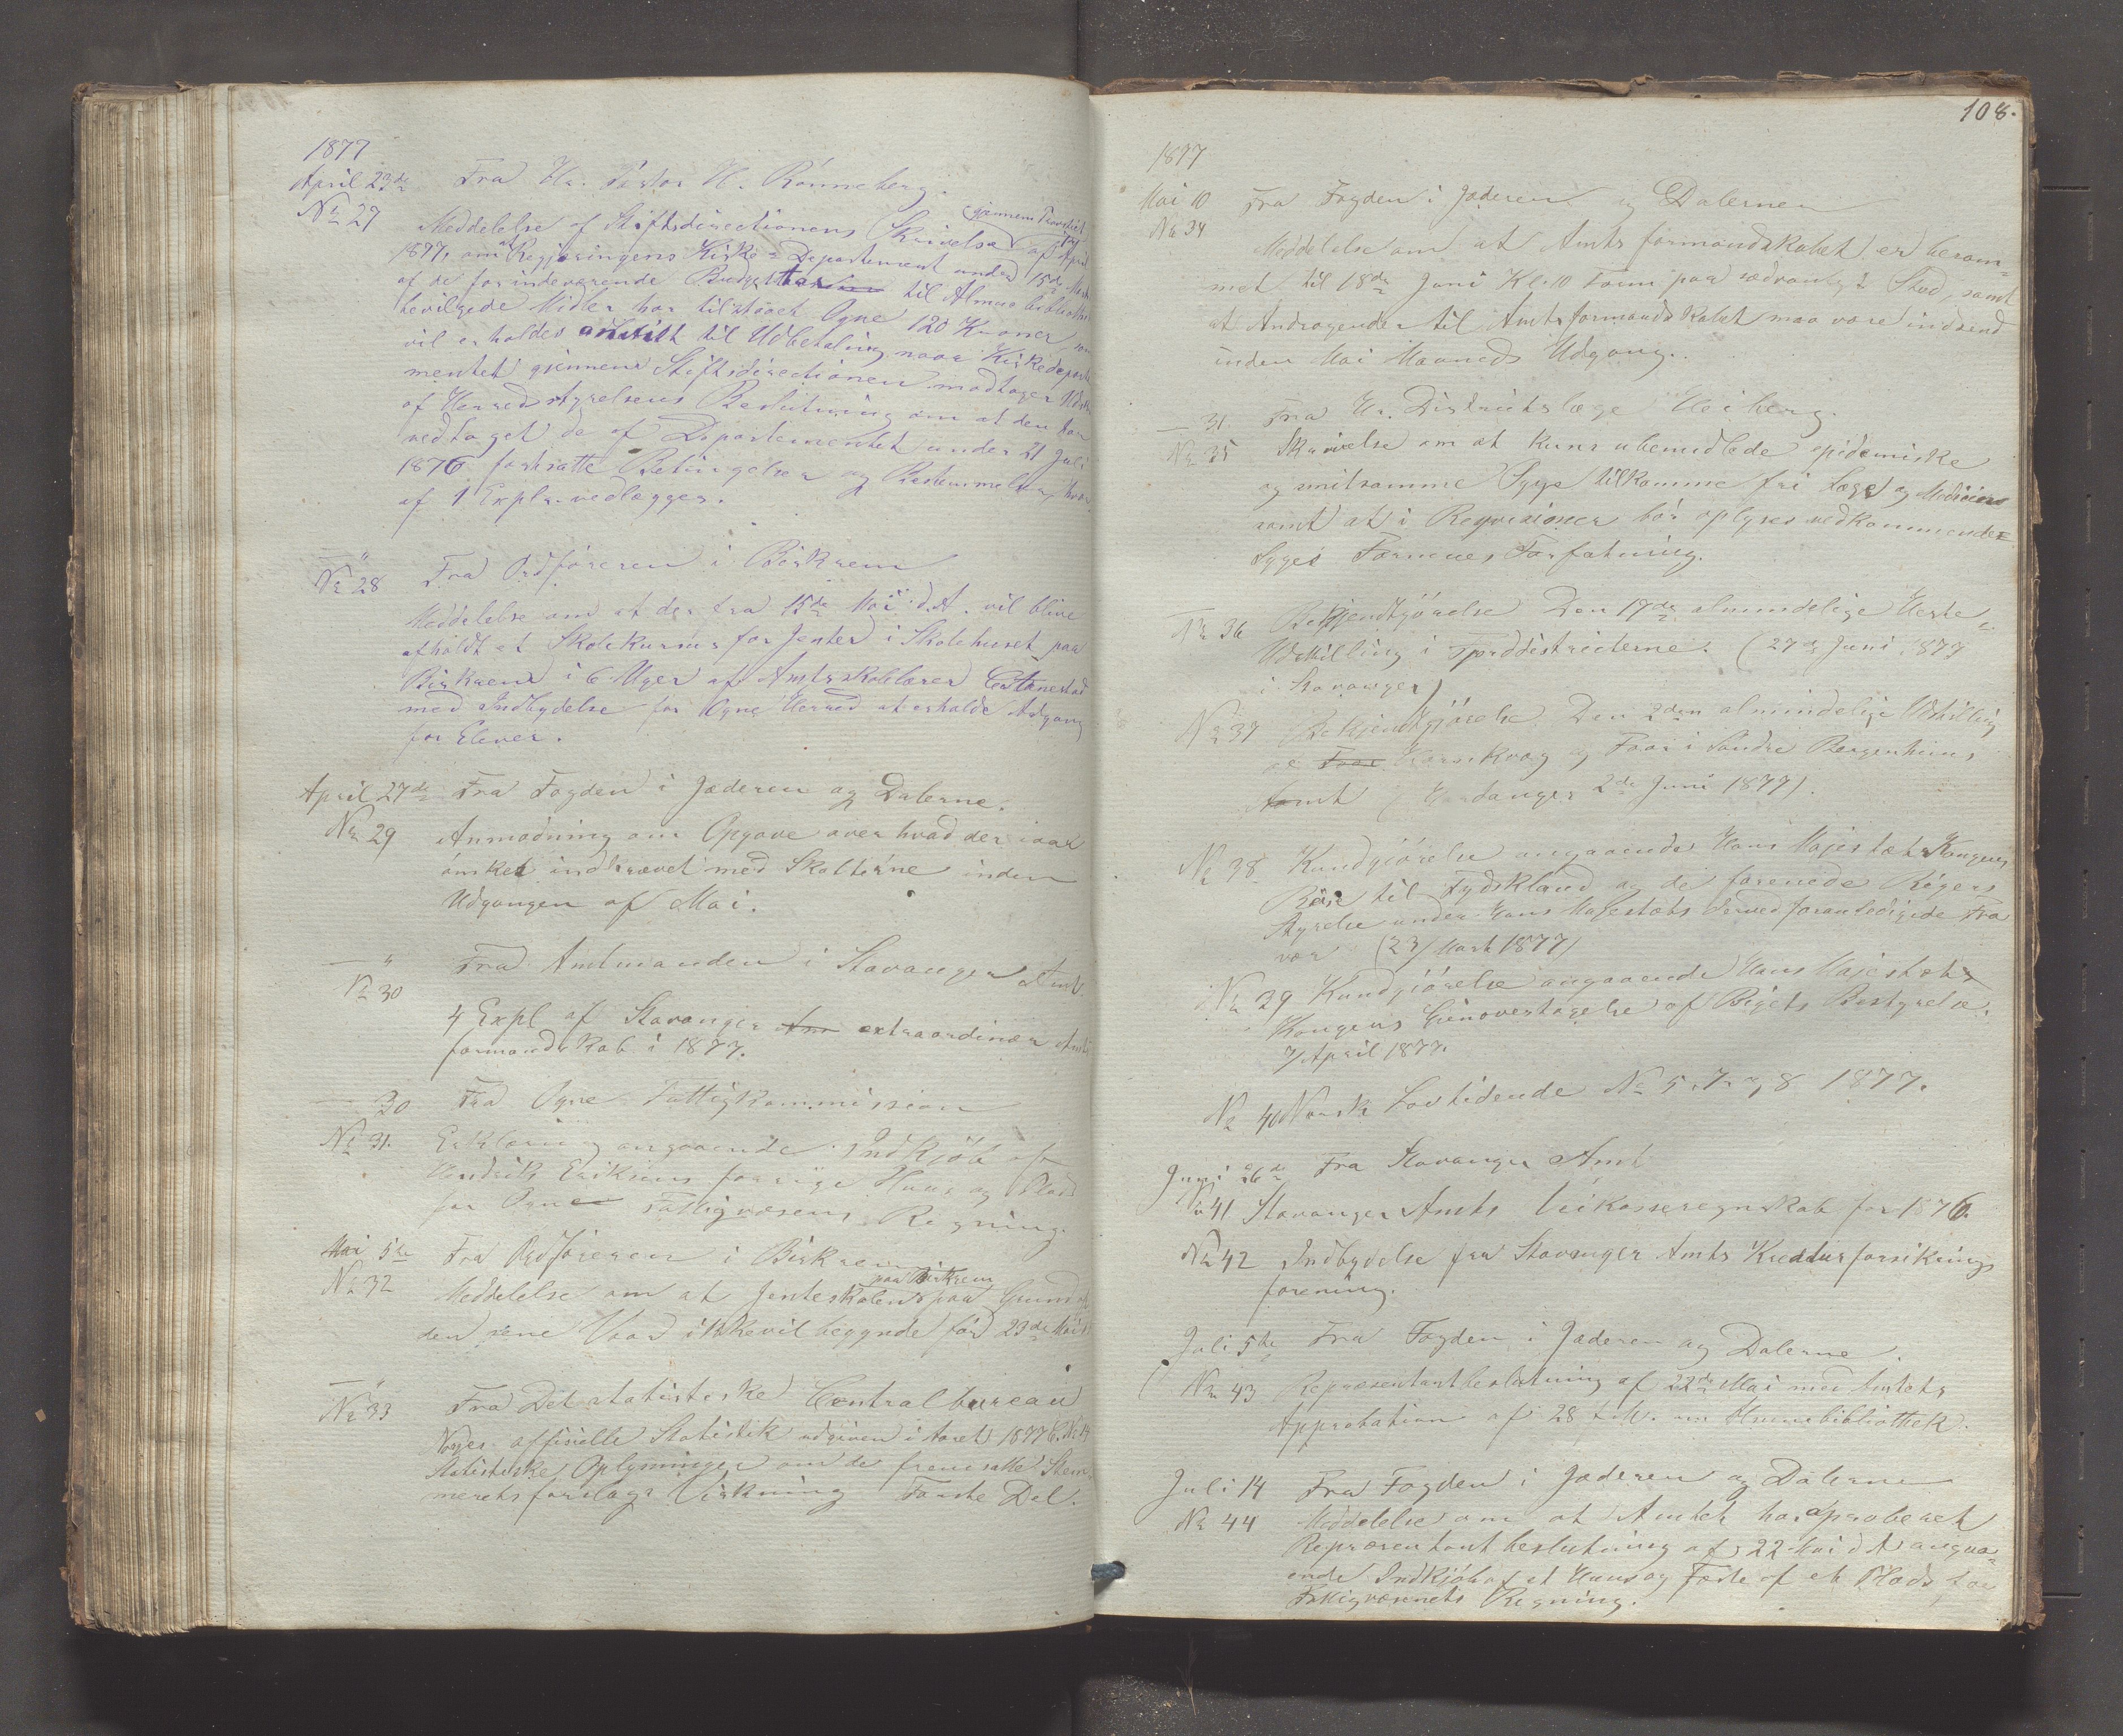 1877
April 23de Fra Hr. Pastor H. Rönneberg.
No 27 gjennem Provstiet
Meddelelse af Stiftsdirectionens Skrivelse af April
1877, om at Regjeringens Kirke-Departement under 15de Marts
af de for indeværende Budget til Almue bibliothe
bevilgede Midler har tilstaaet Ogne 120 Kroner, som
vil erholdes anvist til Udbetaling naar Kirkedeparte
mentet gjennem Stiftsdirectionen modtager Udskr
af Herredsstyrelsens Beslutning om at den har
vedtaget de af Departementet under 21 Juli
1876 fastsatte Betingelser og Bestemmelser, hvor
af 1 Expl. vedlægges.
— "
No 28 Fra Ordföreren i Birkrem
Meddelelse om at der fra 15de Mai d.A. vil blive
afholdt et Skolekursus for Jenter i Skolehuset paa
Birkrem i 6 Uger af Amtsskolelærer
med Indbydelse for Ogne Herred at erholde Adgang
for Elever.
April 27de Fra Fogden i Jæderen og Dalerne.
No 29 Anmodning om Opgave over hvad der iaar
önskes indkrævet med Skatterne inden
Udgangen af Mai.
— " Fra Amtmanden i Stavanger Amt
No 30
4 Expl af Stavanger Am extraordinær Amts
formandskab i 1877.
— 30 Fra Ogne Fattigkommission
No 31. Erklæring angaaende Indkjöb af
Hendrik Eriksens forrige Huus og Plads
for Ogne Fattigvæsens Regning.
Mai 5te Fra Ordföreren i Birkrem
No 32 paa Birkrem
Meddelelse om at Jenteskolen paa Grund af
den sene Vaar ikke vil begynde för 23de Mai
— "
No 33 Fra Det statistiske Centralbureau
Norges officielle Statistik udgiven i Aaret 1877
Statistiske Oplysninger om de fremsatte Stem-
meretsforslags Virkning Förste Del.
108.
1877
Mai 10 Fra Fogden i Jæderen og Dalerne
No 34
Meddelelse om at Amtsformandskabet er beram-
met til 18de Juni Kl. 10 Form paa sædvanligt Sted, samt
at Andragender til Amtsformandskabet maa være indsend
inden Mai Maaneds Udgang.
— 31. Fra Hr. Distriktslæge Heiberg.
No 35 Skrivelse om at kuns ubemidlede epidemiske
og smitsomme Syge tilkomme fri Læge og Medicin
samt at i Reqvisioner bör oplyses vedkommende
Syges Formues Forfatning.
No 36 Bekjendtgjörelse Den 17de almindelige Heste-
Udstilling i Fjorddistricterne. (27de Juni 1877
i Stavanger)
No 37 Bekjendtgjörelse Den 2den almindelige Udstilling
af Faae Hornkvæg og Faar i Söndre Bergenhuus
Amt (Hardanger 2de Juni 1877).
No 38 Kundgjörelse angaaende Hans Majestæt Kongens
Reise til Tydskland og de forenede Rigers
Styrelse under Hans Majestæts derved foranledigede Fra
vær (23/ Marts 1877)
No 39 Kundgjörelse angaaende Hans Majestæt
Kongens Gienovertagelse af Rigets Bestyrelse.
7/ April 1877.
No 40 Norsk Lovtidende No 5, 7 og 8 1877.
Juni 26de Fra Stavanger Amt
No 41 Stavanger Amts Veikasseregnskab for 1876.
No 42 Indbydelse fra Stavanger Amts Kreaturforsikrings
forening.
Juli 5te Fra Fogden i Jæderen og Dalerne
No 43 Repræsentantbeslutning af 22de Mai med Amtets
Approbation af 28 f.M. om Almuebibliothek.
Juli 14 Fra Fogden i Jæderen og Dalerne
No 44 Meddelelse om at Amtet har approberet
Repræsentantbeslutning af 22 Mai d A angaa-
ende Indkjöb af et Huus og Fæste af et Plads for
Fattigvæsenets Regning.